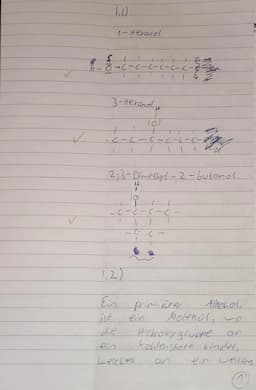 1.1)
1-Hexanol
H-O-C-C-C-C-C-C
3-Hexanol
H
|O|
-C-C-C-C-C-C-
2,3-Dimethyl-2-butanol
H
|O|
-C-C-C-C-
-C- -C-
1.2)
Ein primärer Alkohol,
ist ein Molekül, wo
die Hydroxygruppe an
ein Kohlenstoff bindet,
welcher an ein weiteres
1